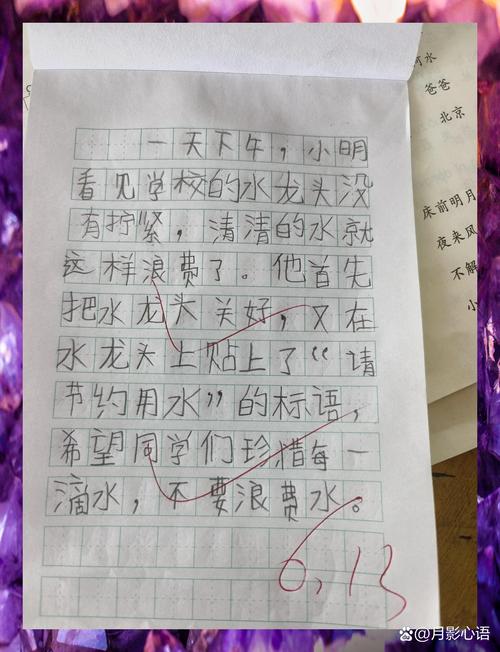 一天下午，小明
看见学校的水龙头没
有拧紧，清清的水就
这样浪费了。他首先
把水龙头关好，又在
水龙头上贴上了“请
节约用水”的标语，
希望同学们珍惜每一
滴水，不要浪费水。
6.13
水
爸爸
北京
床前明月
夜来风
不解
小
@月影心语